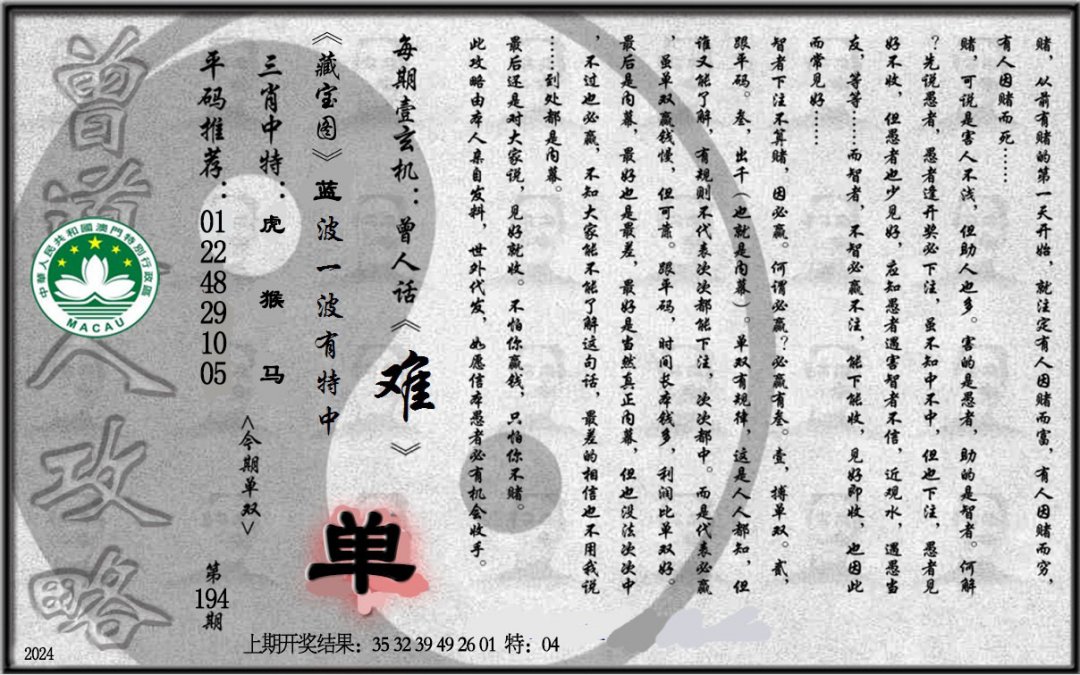 赌，从前有赌的第一天开始，就注定有人因赌而富，有人因赌而穷，
有人因赌而死……
赌，可说是害人不浅，但助人也多。害的是愚者，助的是智者。何解
？先说愚者，愚者逢开奖必下注，虽不知中不中，但也下注，愚者见
好不收，但愚者也少见好，应知愚者遇害智者不信，近观水，遇愚当
友，等等……而智者，不智必赢不注，能下能收，见好即收，也因此
而常见好……
智者下注不算赌，因必赢。何谓必赢？必赢有叁。壹，搏单双。贰，
跟平码。叁，出千（也就是内幕）。单双有规律，这是人人都知，但
谁又能了解，有规则不代表次次都能下注，次次都中。而是代表必赢
，虽单双赢钱慢，但可靠。跟平码，时间长本钱多，利润比单双好。
最后是内幕，最好也是最差，最好是当然真正内幕，但也没法次次中
，不过也必赢，不知大家能不能了解这句话，最差的相信也不用我说
……到处都是内幕。
最后还是对大家说，见好就收。不怕你赢钱，只怕你不赌。
此攻略由本人亲自发料，世外代发，如愿信本愚者必有机会收手。
每期壹玄机：曾人话《难》
《藏宝图》蓝波一波有特中
单
三肖中特：虎 猴 马
<今期单双>
平码推荐：01 22 48 29 10 05
第194期
曾道人攻略
中華人民共和國澳門特別行政區
MACAU
上期开奖结果：35 32 39 49 26 01 特：04
2024